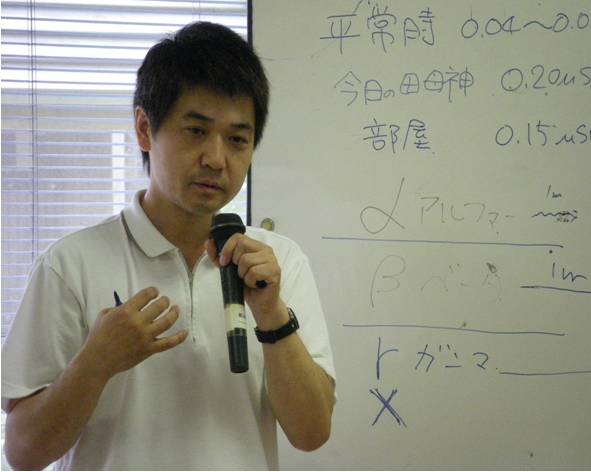 平常時 0.04〜0.0
今日の田母神 0.20μS
部屋 0.15μS
α アルファー 1m
β ベータ 1m
r ガンマ
X